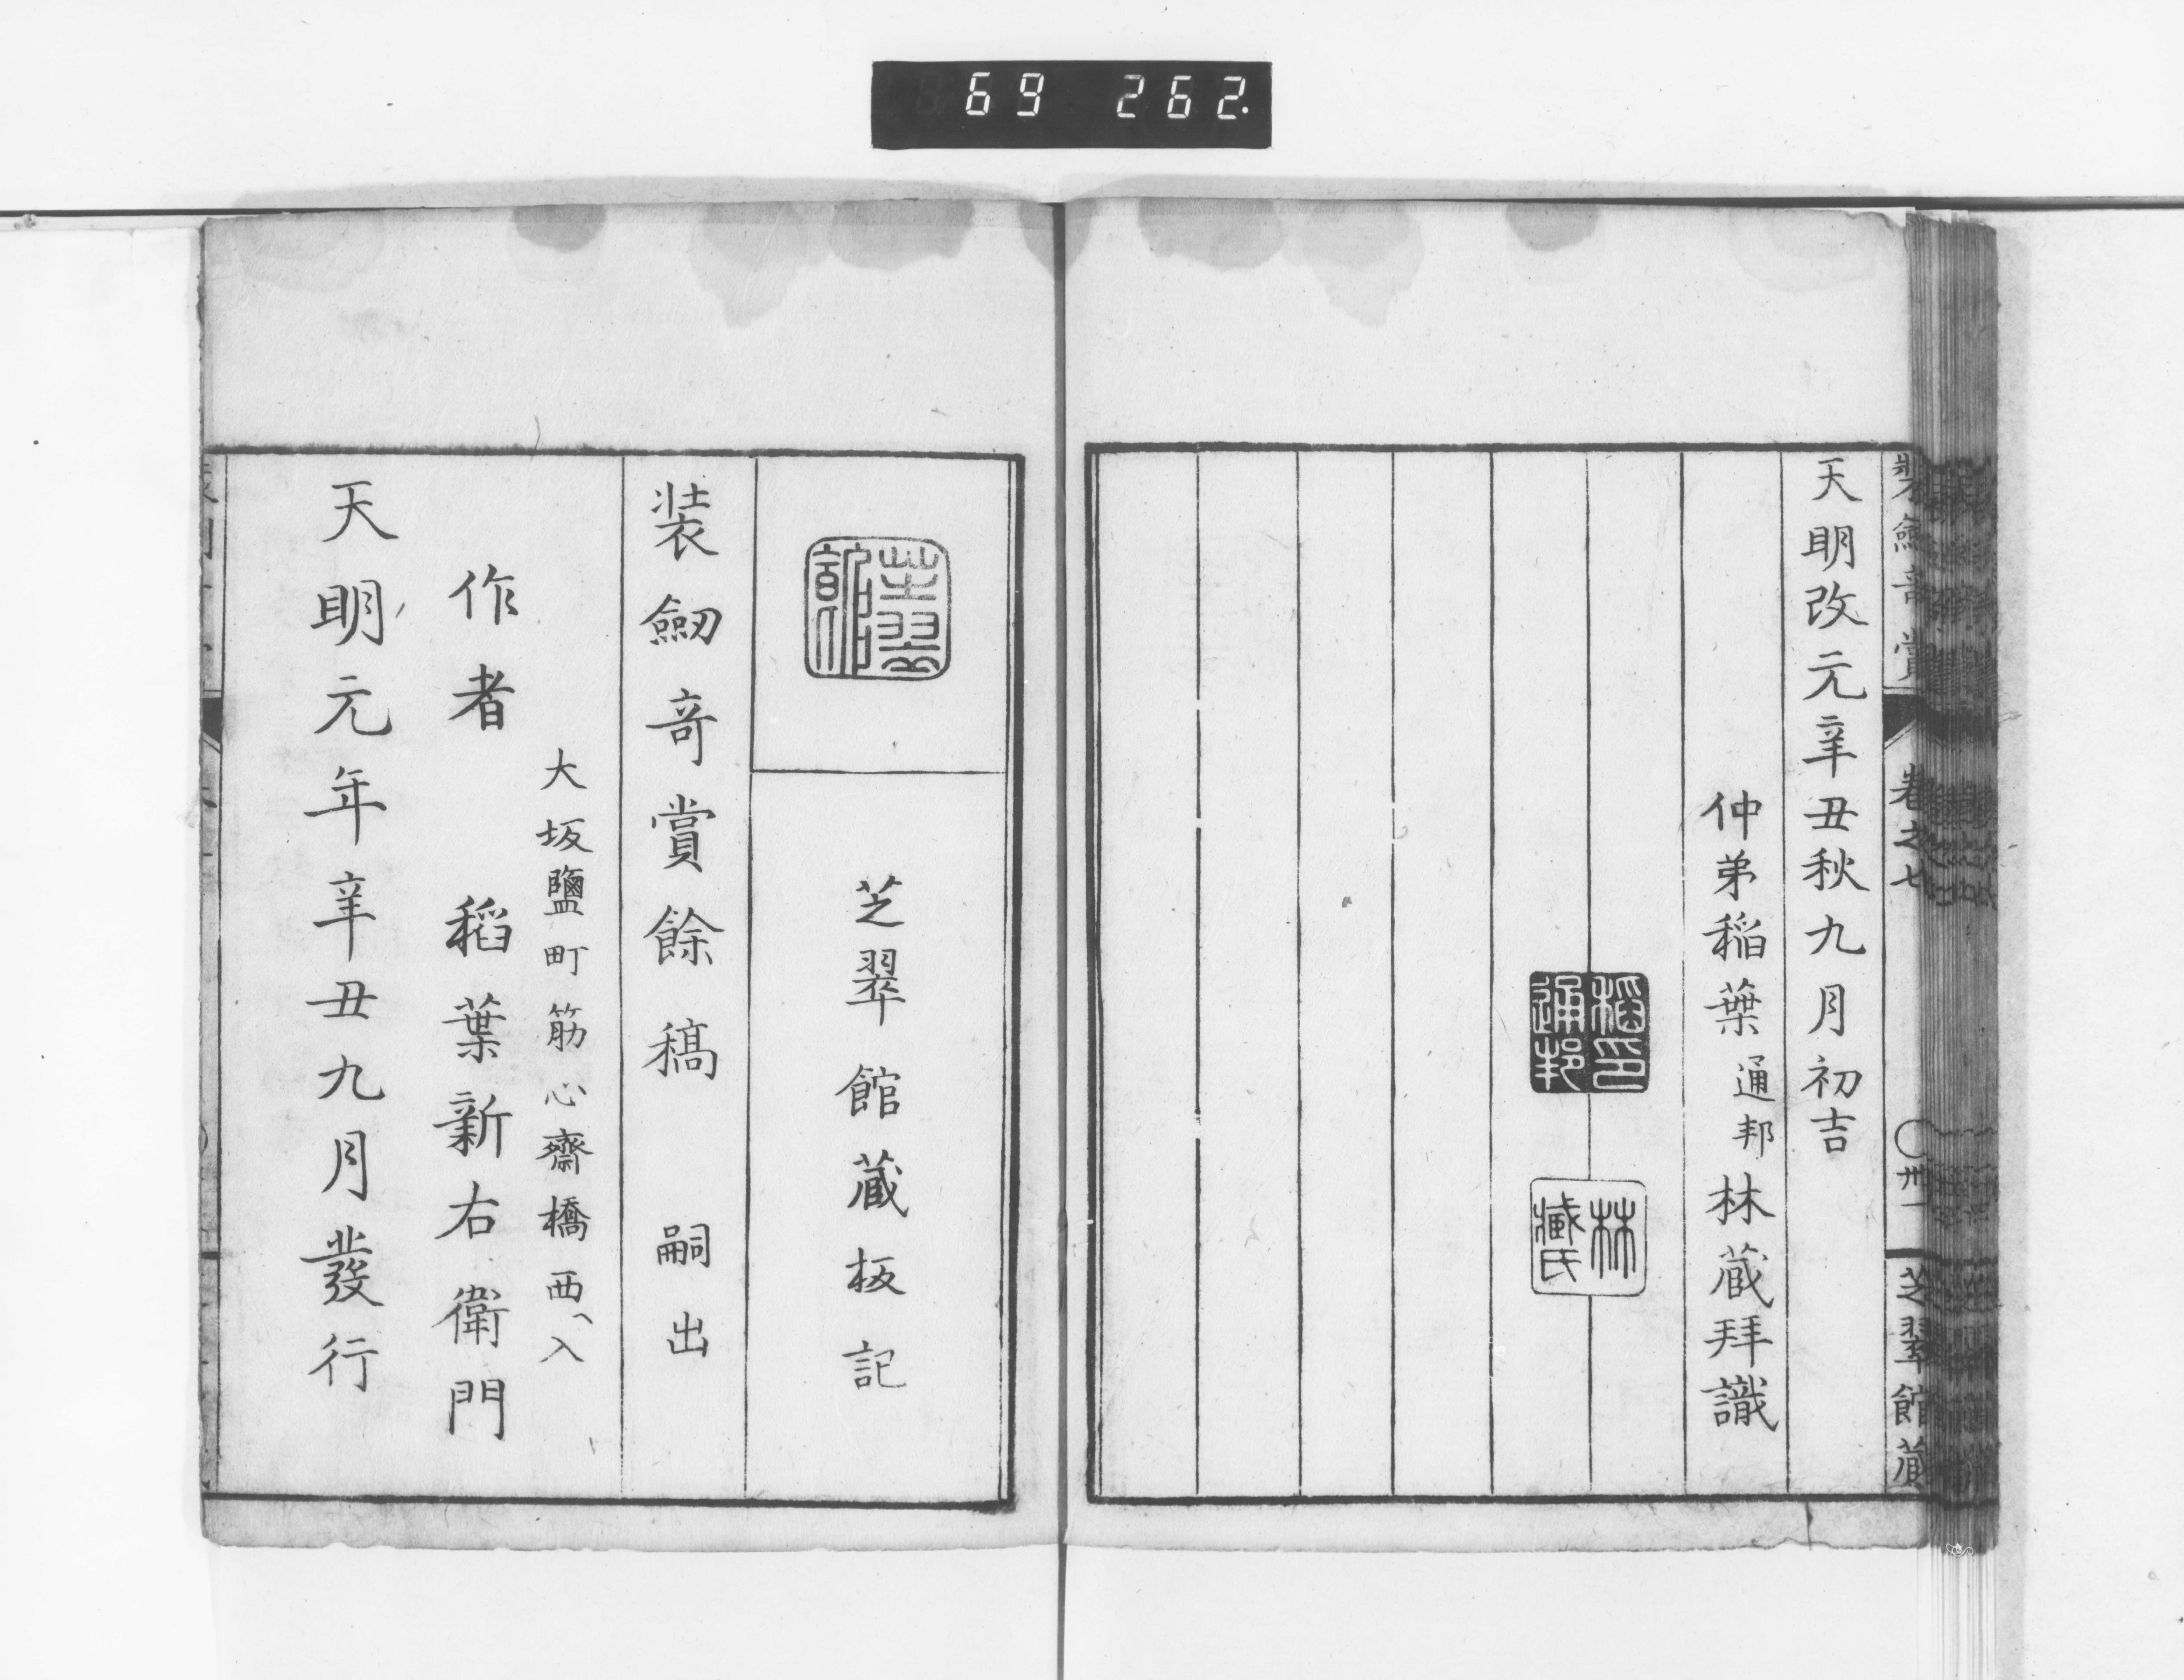 69 262.
天明改元辛丑秋九月初吉
仲弟稻葉通邦林蔵拜識
稲印通邦
林臧氏
卷之七
卅一
芝翠館蔵
芝翠館蔵板記
装劔竒賞餘稿 嗣出
大坂鹽町筋心齋橋西ヘ入
作者 稻葉新右衛門
天明元年辛丑九月發行